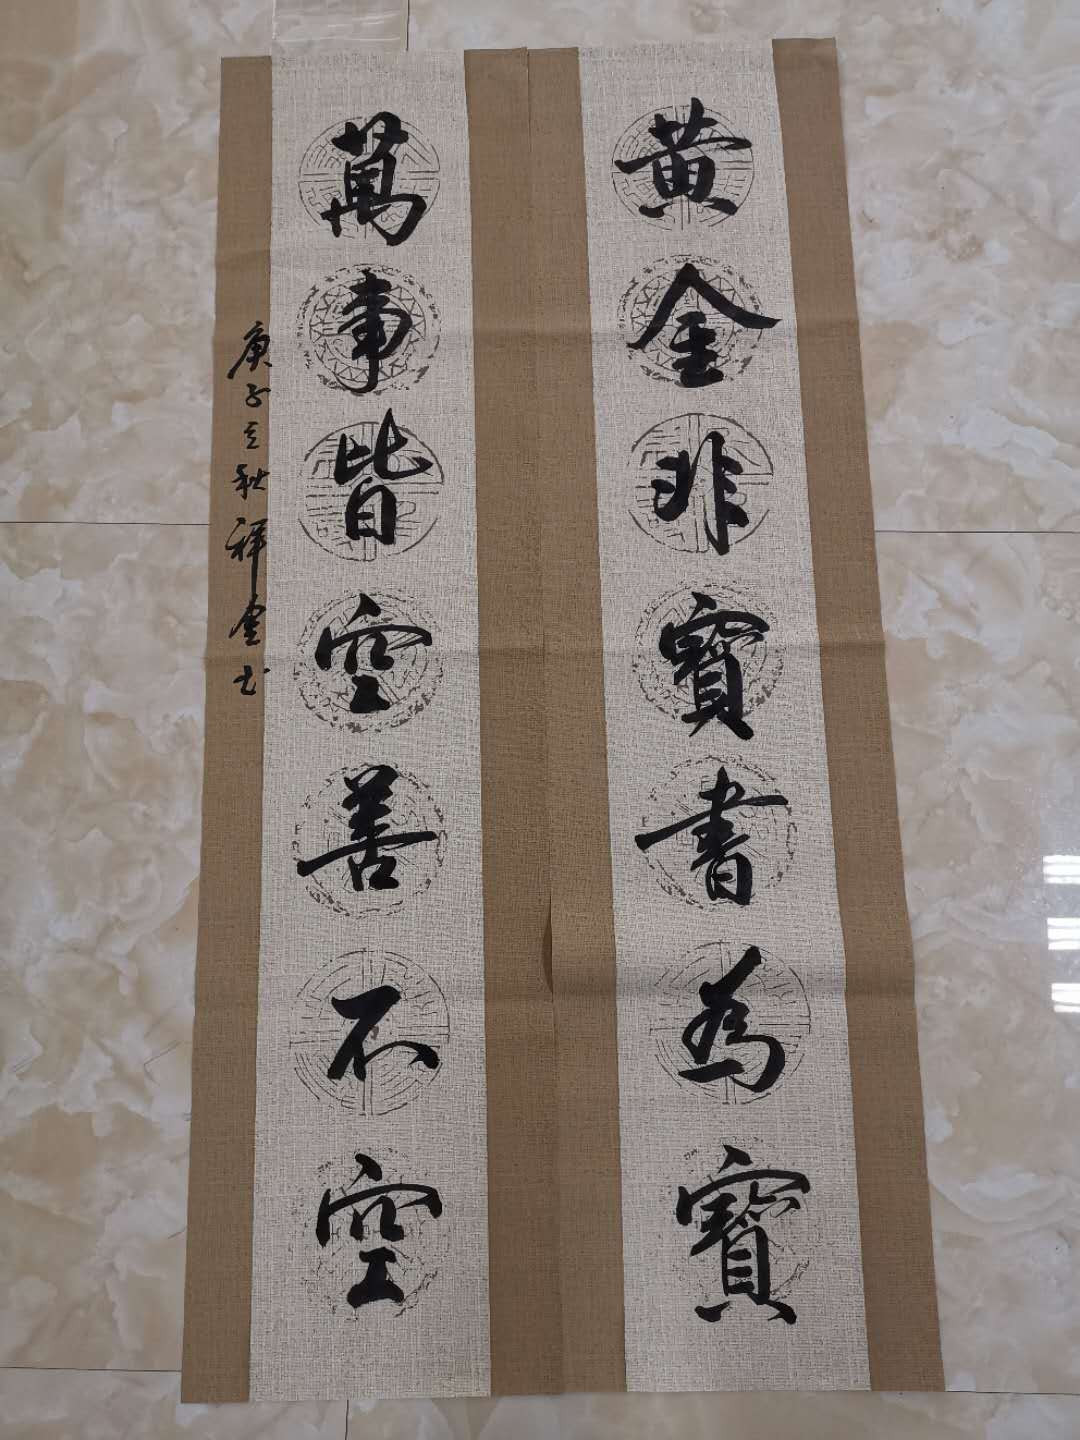 黄金非寳書為寳
萬事皆空善不空
庚子立秋祥雲书